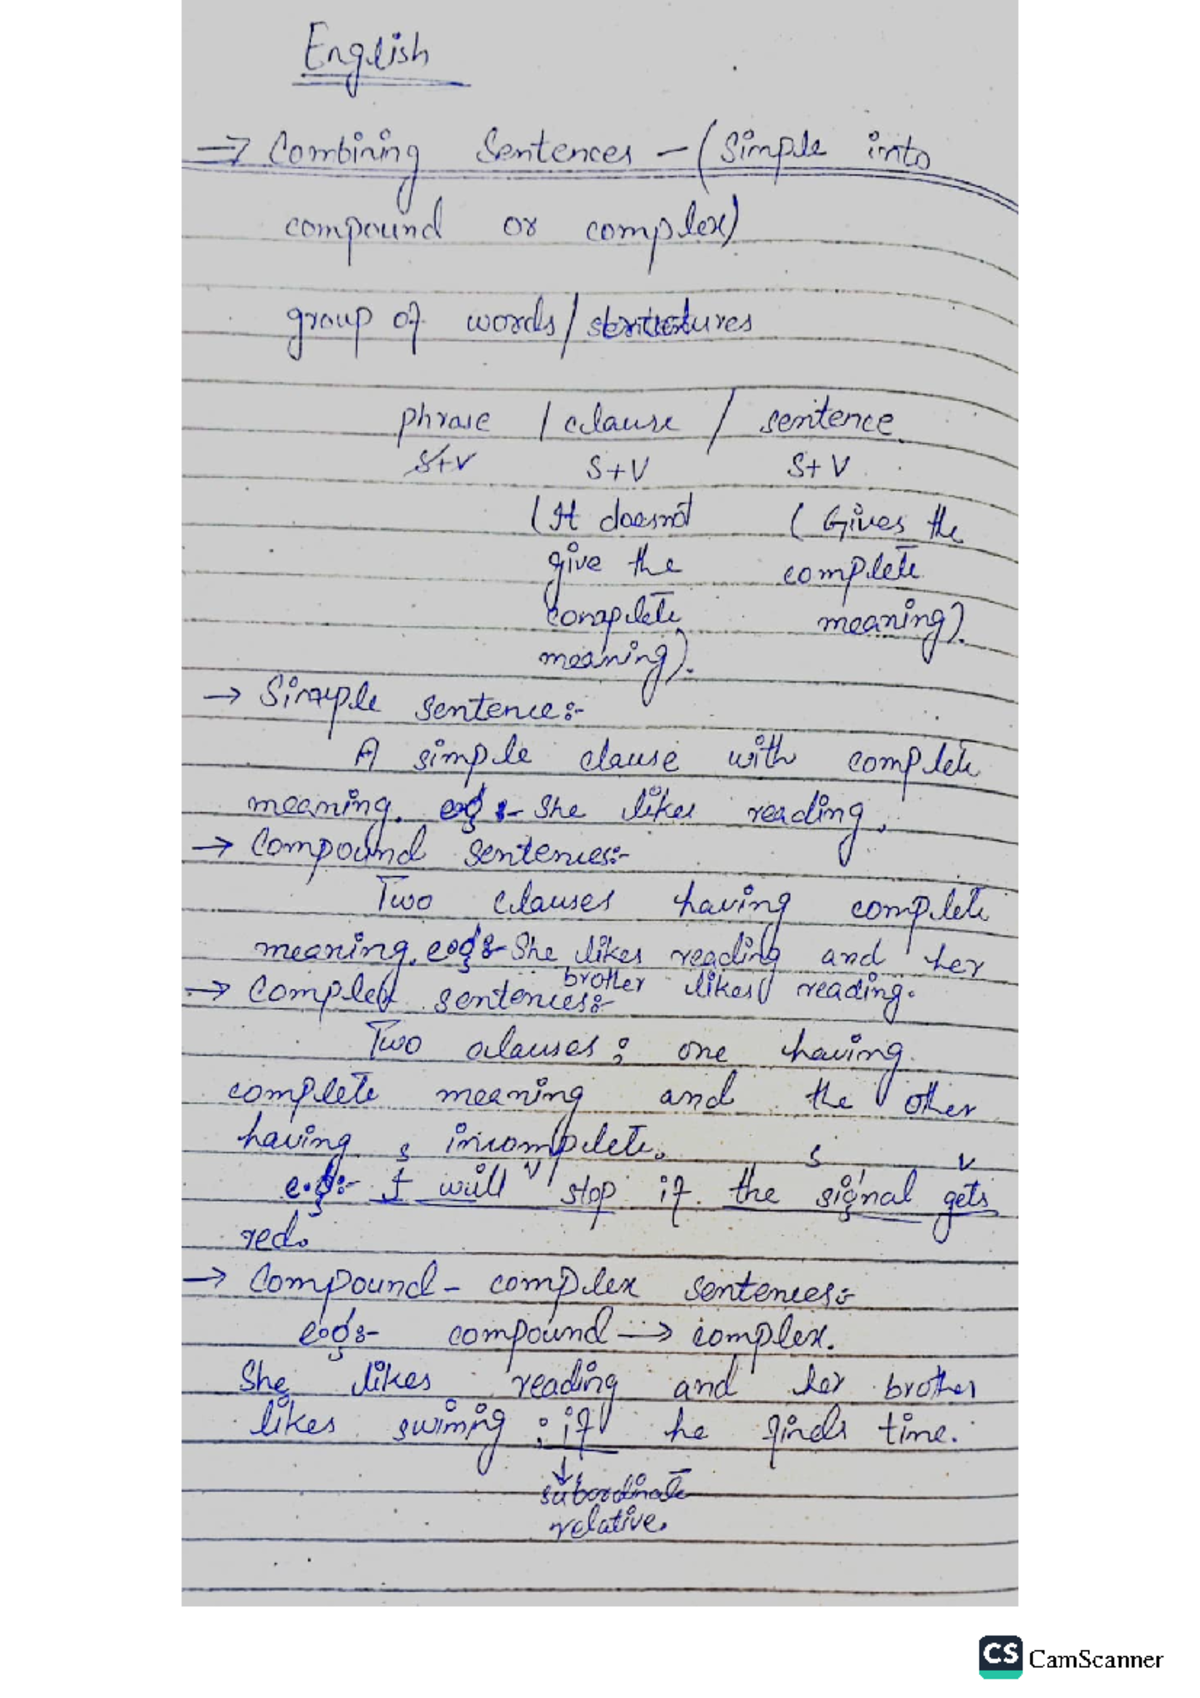 English
→ Combining Sentences - (Simple into
compound or complex)
group of words / structures
phrase / clause / sentence
S+V S+V S+V
(It doesnot (Gives the
give the complete
complete meaning).
meaning).
→ Simple sentence:-
A simple clause with complete
meaning. e.g:- She likes reading.
→ Compound sentences:-
Two clauses having complete
meaning. e.g:- She likes reading and her
brother likes reading.
→ Complex sentences:-
Two clauses; one having
complete meaning and the other
having incomplete.
S V S V
e.g:- I will stop if the signal gets
red.
→ Compound - complex sentences:-
e.g:- compound → complex.
She likes reading and her brother
likes swiming ; if he finds time.
↓
subordinate
relative.
CS CamScanner